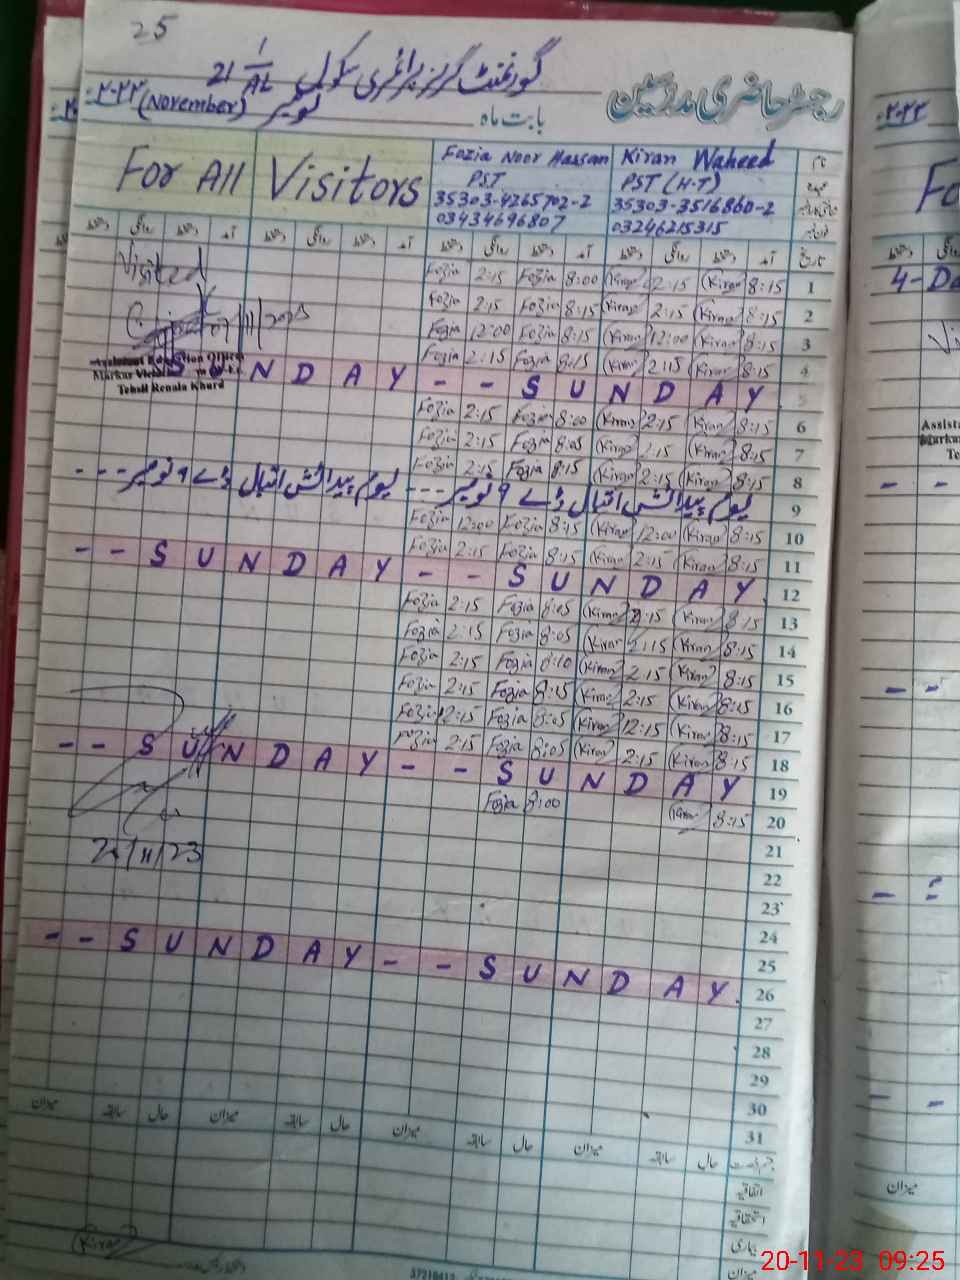 25
گورنمنٹ گرلز پرائمری سکول 21/1 AL
رجسٹر حاضری مدرسین
بابت ماہ نومبر (November) ۲۰۲۳
For All Visitors
Fozia Noor Hassan
PST
35303-4265702-2
03434696807
Kiran Waheed
PST (H-T)
35303-3516860-2
03246215315
نام
عہدہ
تاریخ
آمد
روانگی
دستخط
Visited
Fozia 2:15 Fozia 8:00 Kiran 2:15 Kiran 8:15 1
Fozia 2:15 Fozia 8:15 Kiran 2:15 Kiran 8:15 2
Fozia 12:00 Fozia 8:15 Kiran 12:00 Kiran 8:15 3
Fozia 2:15 Fozia 8:15 Kiran 2:15 Kiran 8:15 4
Assistant Education Officer
Markaz
Tehsil Renala Khurd
SUNDAY - - SUNDAY 5
Fozia 2:15 Fozia 8:00 Kiran 2:15 Kiran 8:15 6
Fozia 2:15 Fozia 8:05 Kiran 2:15 Kiran 8:15 7
Fozia 2:15 Fozia 8:15 Kiran 2:15 Kiran 8:15 8
یوم پیدائش اقبال ڈے ۹ نومبر - - - یوم پیدائش اقبال ڈے ۹ نومبر - - - 9
Fozia 12:00 Fozia 8:15 Kiran 12:00 Kiran 8:15 10
Fozia 2:15 Fozia 8:15 Kiran 2:15 Kiran 8:15 11
- - SUNDAY - - SUNDAY 12
Fozia 2:15 Fozia 8:05 Kiran 2:15 Kiran 8:15 13
Fozia 2:15 Fozia 8:05 Kiran 2:15 Kiran 8:15 14
Fozia 2:15 Fozia 8:10 Kiran 2:15 Kiran 8:15 15
Fozia 2:15 Fozia 8:15 Kiran 2:15 Kiran 8:15 16
Fozia 12:15 Fozia 8:05 Kiran 12:15 Kiran 8:15 17
Fozia 2:15 Fozia 8:05 Kiran 2:15 Kiran 8:15 18
- - SUNDAY - - SUNDAY 19
Fozia 8:00 Kiran 8:15 20
21
22
23
24
25
- - SUNDAY - - SUNDAY 26
27
28
29
30
31
میزان سابقہ حال میزان سابقہ حال میزان سابقہ حال میزان سابقہ حال
اتفاقیہ
استحقاقیہ
بیماری
میزان
Kiran
۲۰۲۳
Fo
4-Da
Assista
Marka
Te
میزان
20-11-23 09:25